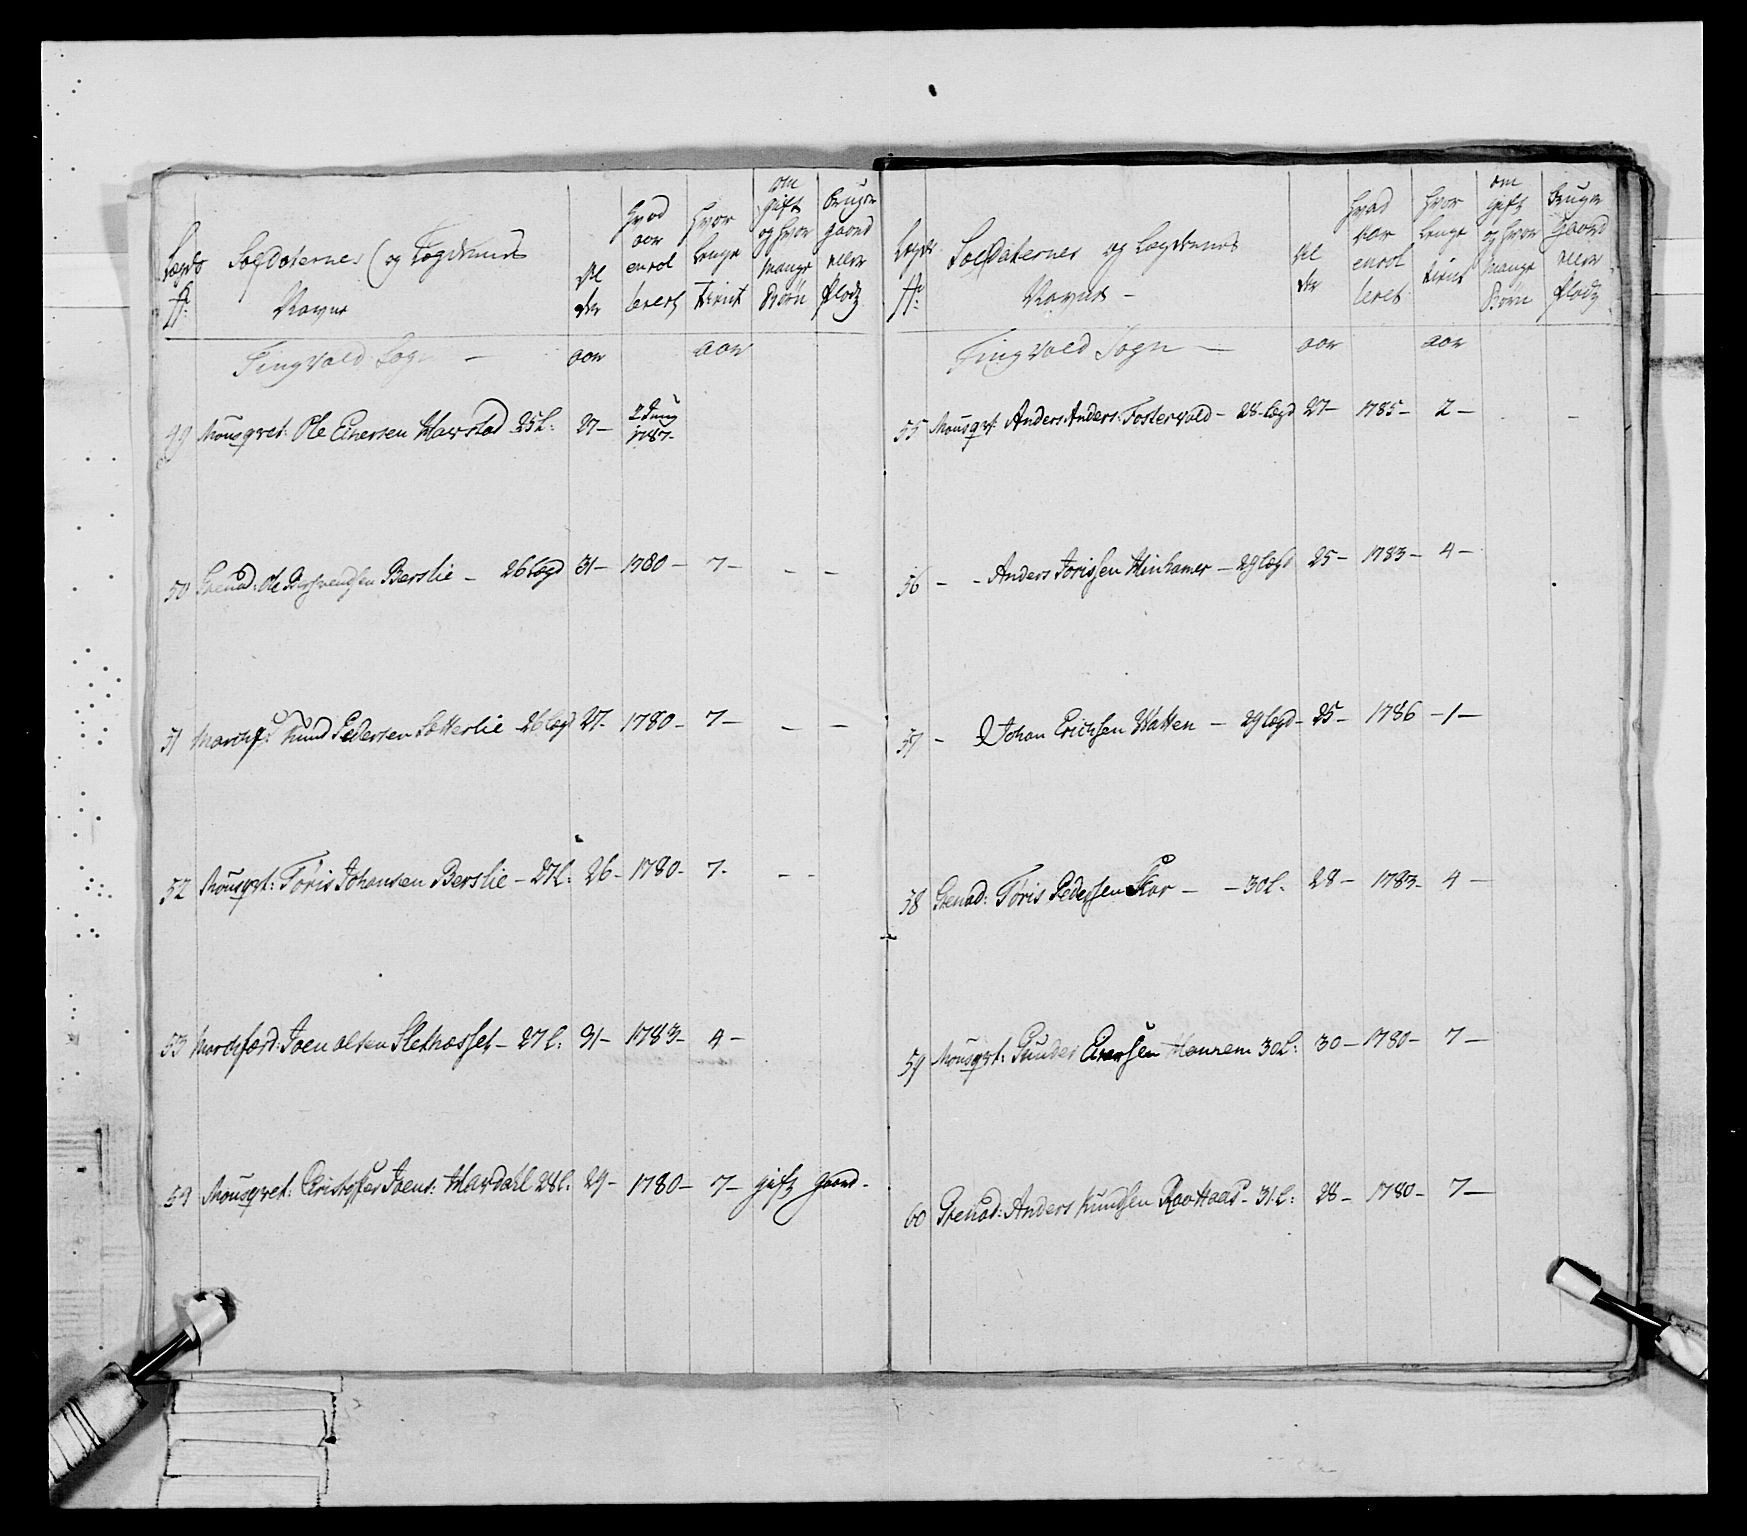 Lægds
N:
Soldaternes og Lægdernes
Navne
Al
der
hvad
aar
enrol
leret
hvor
lenge
tient
om
gift
og hvor
mange
Børn
Bruger
gaard
eller
plads
Tingvold Sogn —
aar
aar
49 Mousqvet: Ole Einersen Harstad 25 L: 27— 2 Juny 1787-
50 Grenad: Ole Berslie — 26 Lægd 31— 1780— 7— — —
51 Knud Pedersen Sætterlie — 26 Lægd 27- 1780— 7— — —
52 Mousqvet: Tøris Johansen Berslie — 27 L: 26- 1780- 7- — -
53 Joen Olsen — 27 L: 31— 1783- 4—
54 Mousqvet: Christopher Joens: Hardahl 28 L: 29— 1780— 7— gift gaard-
Lægds
N:
Soldaternes og Lægdernes
Navne —
Al
der
hvad
aar
enrol
leret
hvor
lenge
tient
om
gift
og hvor
mange
Børn
Bruger
Gaard
eller
plads
Tingvold Sogn —
aar
aar
55 Mousqvet: Anders Anders: Fostervold — 28 Lægd 27— 1785— 2— - —
56 — - Anders Jorissen Minhamer — 29 Lægd 25— 1783— 4—
57 — Johan Erichsen Watten — 29 Lægd— 25— 1786 —1—
58 Grenad: Tøris Pedersen Skar — — 30 L. 28— 1783- 4—
59 Mousqvet: Gunder Einersen 30 L: 30— 1780— 7—
60 Grenad: Anders Knudsen — 31 L: 28— 1780— 7—